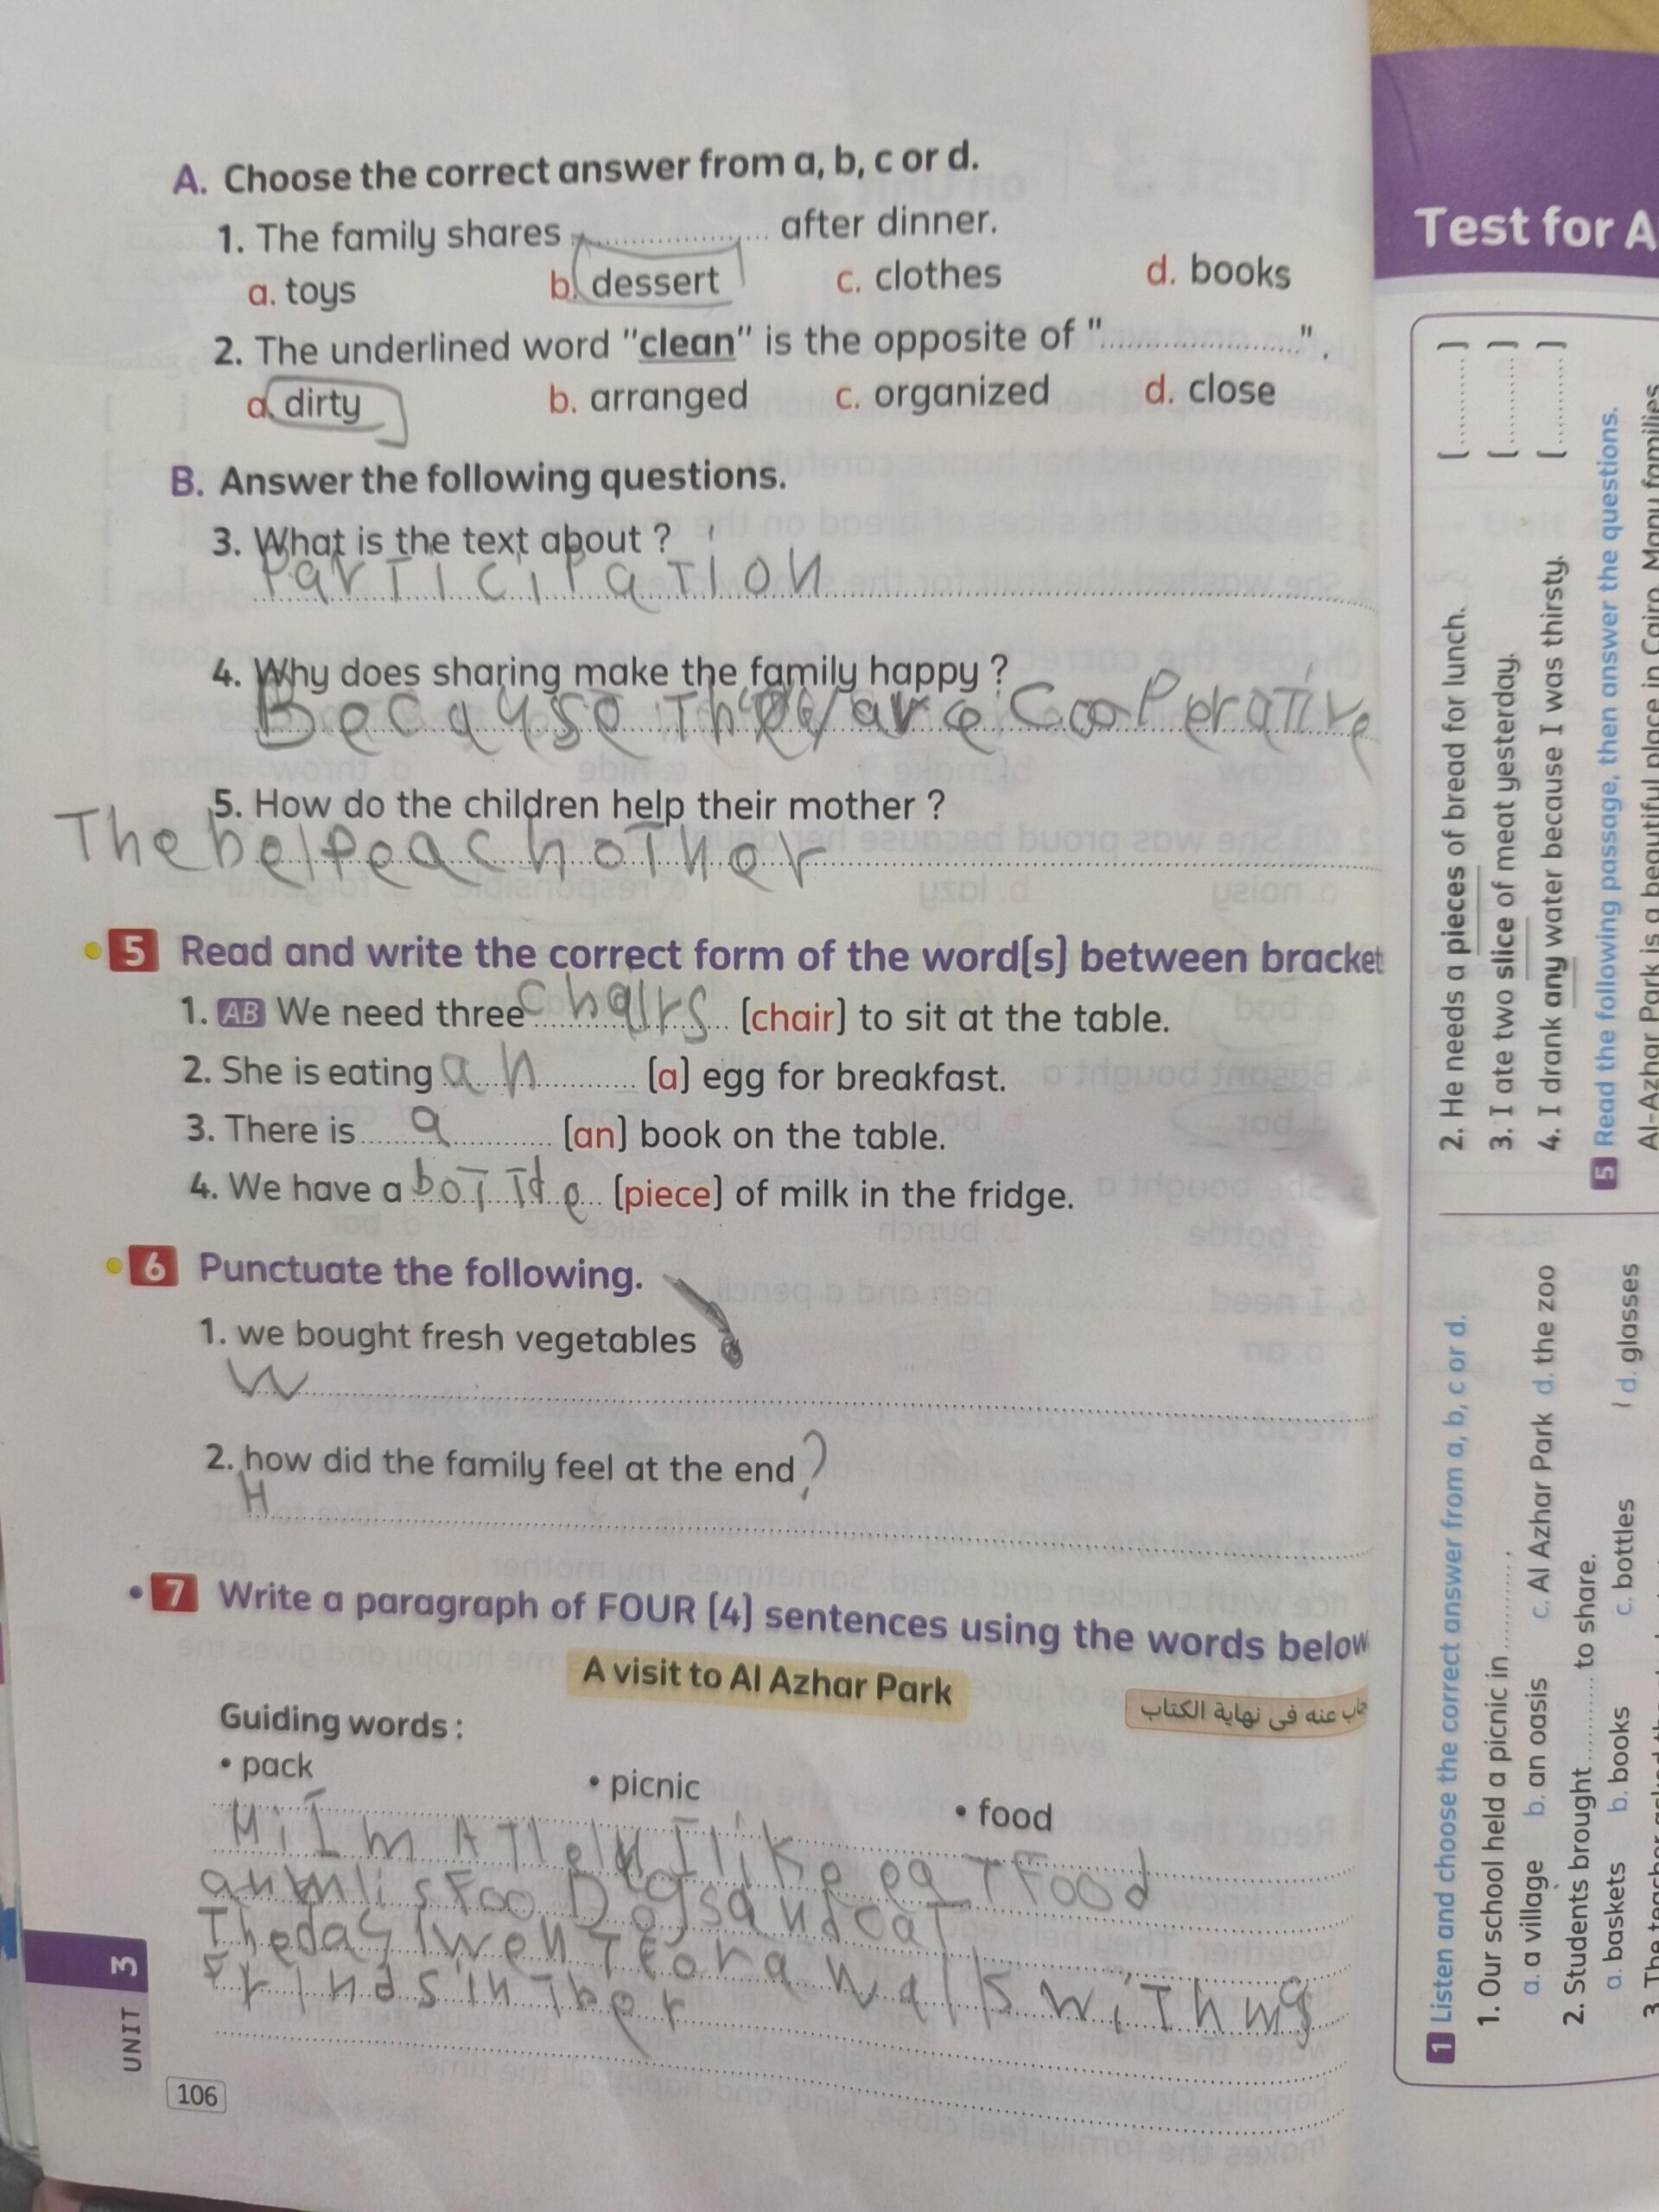 A. Choose the correct answer from a, b, c or d.
1. The family shares ........................ after dinner.
a. toys b. dessert c. clothes d. books
2. The underlined word "clean" is the opposite of "........................".
a. dirty b. arranged c. organized d. close
B. Answer the following questions.
3. What is the text about ?
ParTiciPaTion
4. Why does sharing make the family happy ?
Because They are CooPeraTive
5. How do the children help their mother ?
The helpeachoTher
5 Read and write the correct form of the word(s) between bracket
1. AB We need three chairs (chair) to sit at the table.
2. She is eating an (a) egg for breakfast.
3. There is a (an) book on the table.
4. We have a (piece) of milk in the fridge.
6 Punctuate the following.
1. we bought fresh vegetables
W
2. how did the family feel at the end ?
H
7 Write a paragraph of FOUR (4) sentences using the words below
A visit to Al Azhar Park
عنه فى نهاية الكتاب
Guiding words :
• pack • picnic • food
Hi Im I like eaT Food
Foo Dogs and caT
The day I wenT For a walk wiTh my
in
UNIT 3
106
Test for A
2. He needs a pieces of bread for lunch. [............]
3. I ate two slice of meat yesterday. [............]
4. I drank any water because I was thirsty. [............]
5 Read the following passage, then answer the questions.
Al-Azhar Park is a beautiful place in Cairo. Many families
1 Listen and choose the correct answer from a, b, c or d.
1. Our school held a picnic in ............ .
a. a village b. an oasis c. Al Azhar Park d. the zoo
2. Students brought ............ to share.
a. baskets b. books c. bottles d. glasses
3. The teacher asked the